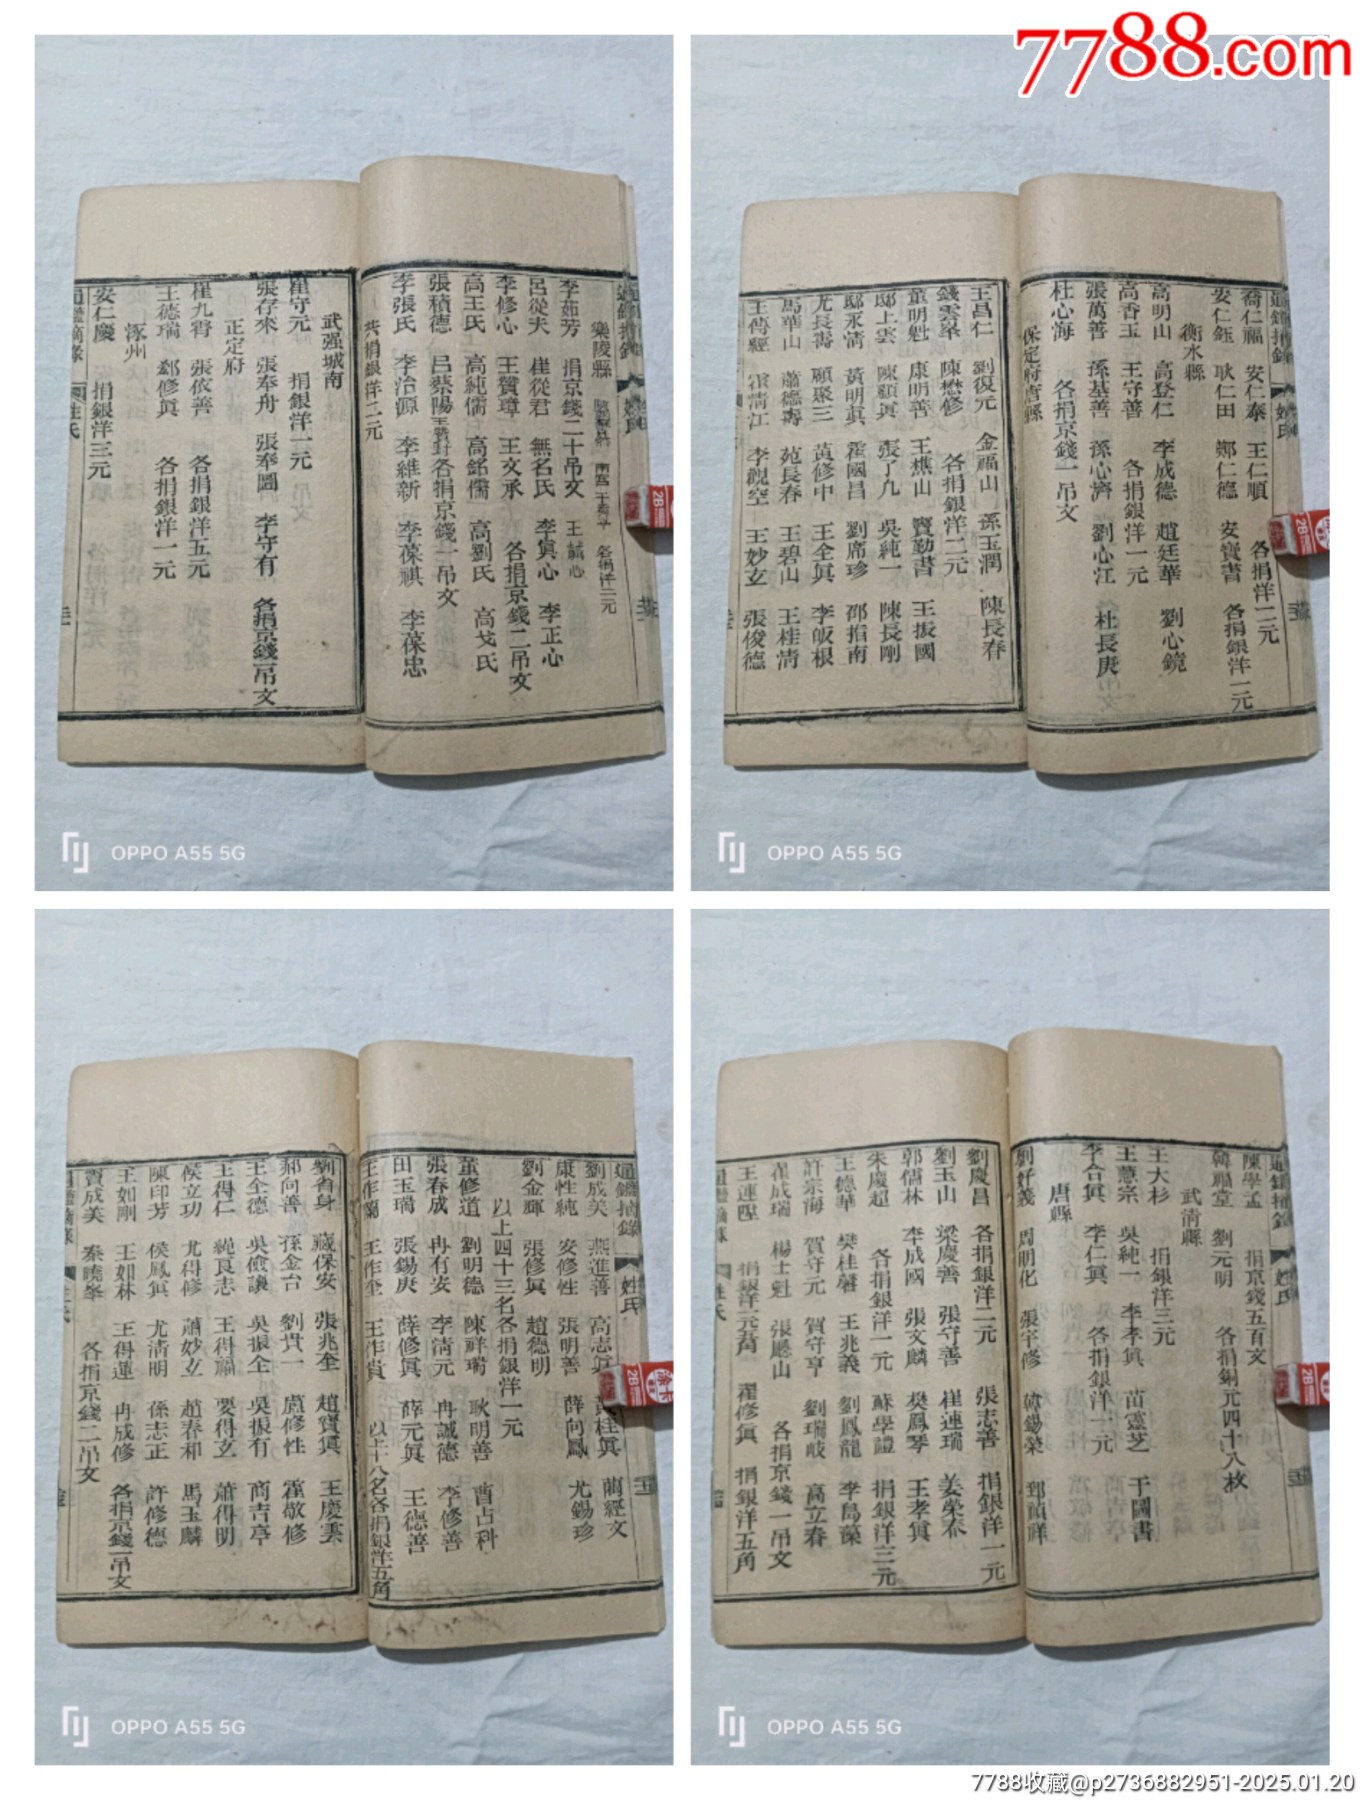 7788.com
樂陵縣
各捐洋二元
李茹芳 捐京錢二十吊文 王誠心
呂從夫 崔從君 無名氏 李眞心 李正心
李修心 王贊璋 王文承 各捐京錢二吊文
高王氏 高純儒 高銘儒 高劉氏 高戈氏
張積德 呂蔡陽 各捐京錢一吊文
李張氏 李治源 李維新 李葆祺 李葆忠
共捐銀洋二元
武强城南
星守元 捐銀洋一元
張存來 張奉舟 張奉圖 李守有 各捐京錢一吊文
正定府
崔九霄 張依善 各捐銀洋五元
王德瑞 鄭修眞 各捐銀洋一元
涿州
安仁慶 捐銀洋三元
通鑑摘錄 姓氏
通鑑摘錄 姓氏
喬仁福 安仁泰 王仁順 各捐洋二元
安仁鈺 耿仁田 鄭仁德 安寶書 各捐銀洋一元
衡水縣
高明山 高登仁 李成德 趙廷華 劉心鏡
高香玉 王守善 各捐銀洋一元
張萬善 孫基善 孫心濟 劉心江 杜長庚
杜心海 各捐京錢一吊文
保定府唐縣
王昌仁 劉復元 金福山 孫玉潤 陳長春
錢雲峯 陳懋修 各捐銀洋二元
董明魁 康明善 王樵山 竇勤書 王振國
邸上雲 陳顯眞 張了凡 吳純一 陳長剛
邸永淸 黃明眞 霍國昌 劉席珍 邵指南
尤長壽 顧聚三 黃修中 王全眞 李皈根
馬華山 蕭德壽 苑長春 王碧山 王桂淸
王傳經 霍淸江 李觀空 王妙玄 張俊德
通鑑摘錄 姓氏
劉成美 燕進善 高志眞 黃桂眞 藺經文
康性純 安修性 張明善 薛向鳳 尤錫珍
劉金輝 張修眞 趙德明
以上四十三名各捐銀洋一元
董修道 劉明德 陳祥瑞 耿明善 曹占科
張春成 冉有安 李淸元 冉誠德 李修善
田玉瑞 張錫庚 薛修眞 薛元眞 王德善
王作蘭 王作奎 王作賓 以上十八名各捐銀洋五角
劉省身 臧保安 張兆奎 趙寶眞 王慶雲
郝向善 孫金台 劉貫一 盧修性 霍敬修
王全德 吳儉讓 吳振全 吳振有 商吉亭
王得仁 純良志 王得福 要得玄 蕭得明
侯立功 尤得修 蕭妙立 趙春和 馬玉麟
陳印芳 侯鳳眞 尤淸明 孫志正 許修德
王如剛 王如林 王得蓮 冉成修 各捐京錢一吊文
賈成美 秦曉峯 各捐京錢二吊文
通鑑摘錄 姓氏
陳學孟 捐京錢五百文
韓福堂 劉元明 各捐銅元四十八枚
武淸縣
王大杉 捐銀洋三元
王蕙宗 吳純一 李孝眞 苗靈芝 于圖書
李合眞 李仁眞 各捐銀洋一元
唐縣
劉好義 周明化 張宇修 韓錫榮 郅禎祥
劉慶昌 各捐銀洋二元 張志善 捐銀洋一元
劉玉山 梁慶善 張守善 崔連瑞 姜榮泰
郭儒林 李成國 張文麟 樊鳳琴 王孝眞
朱慶超 各捐銀洋一元 蘇學禮 捐銀洋三元
王德華 樊桂馨 王兆義 劉鳳龍 李島藻
許宗海 賀守元 賀守亨 劉瑞岐 高立春
崔成瑞 楊士魁 張勝山 各捐京錢一吊文
王連陞 捐銀洋一元五角 翟修眞 捐銀洋五角
OPPO A55 5G
OPPO A55 5G
OPPO A55 5G
OPPO A55 5G
7788收藏@p2736882951-2025.01.20